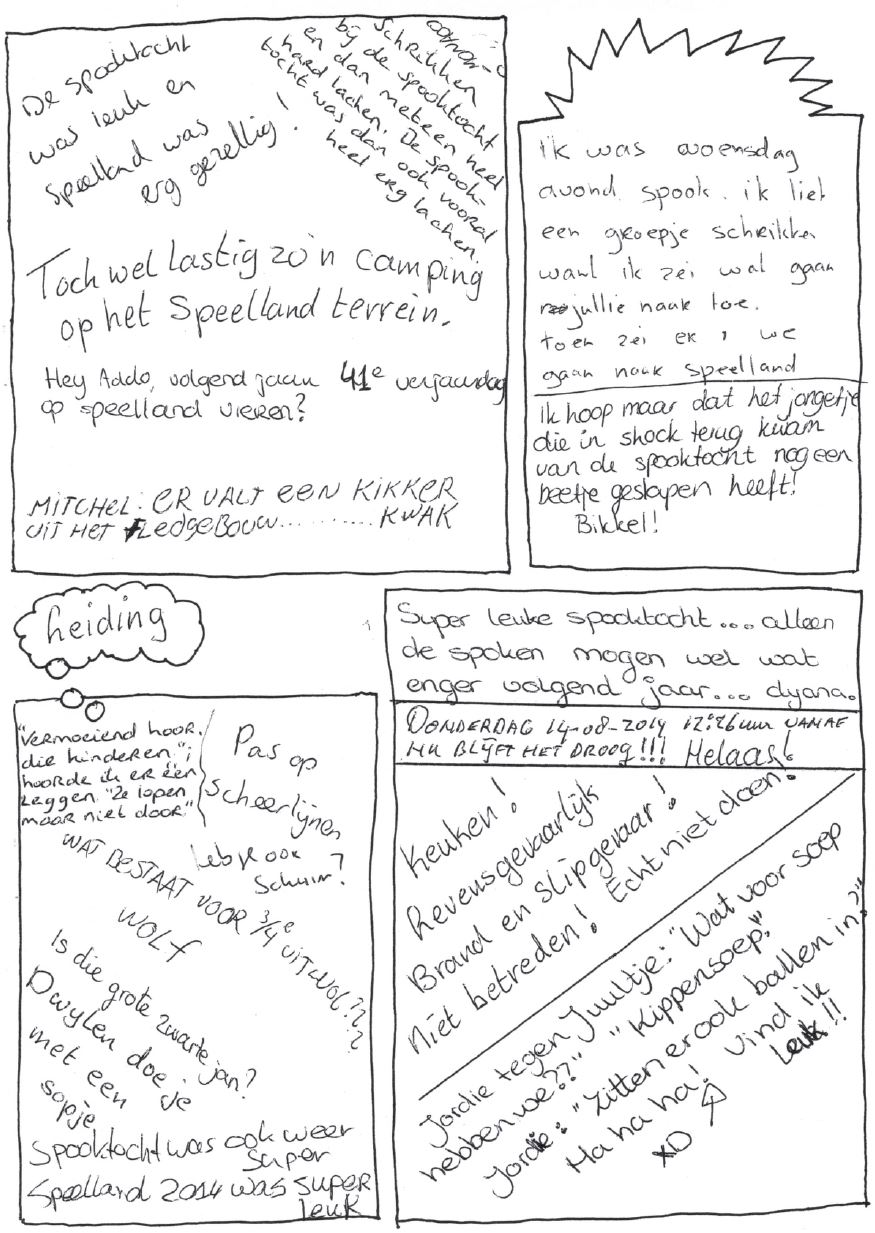 De spooktocht
was leuk en
Speelland was
erg gezellig!
Schrikken
bij de spooktocht
en dan meteen heel
hard lachen. De spook-
tocht was dan ook vooral
heel erg lachen.
Toch wel lastig zo'n camping
op het Speelland terrein.
Hey Addo, volgend jaar 41e verjaardag
op speelland vieren?
MITCHEL: ER VALT EEN KIKKER
UIT HET LEDGEBOUW.......... KWAK
ik was woensdag
avond spook. ik liet
een groepje schrikken
want ik zei wat gaan
jullie naar toe.
toen zei er 1 we
gaan naar speelland
Ik hoop maar dat het jongetje
die in shock terug kwam
van de spooktocht nog een
beetje geslapen heeft!
Bikkel!
heiding
Super leuke spooktocht... alleen
de spoken mogen wel wat
enger volgend jaar... dyana.
DONDERDAG 14-08-2014 12:26 uur VANAF
NU BLIJFT HET DROOG!!! Helaas!
"Vermoeiend hoor,
die kinderen",
hoorde ik er één
zeggen. "Ze lopen
maar niet door"
Pas op
Scheerlijnen
heb je ook
Schuur?
WAT BESTAAT VOOR 3/4e UIT WOL????
WOLF
Is die grote zwarte jan?
Dwylen doe je
met een
sopje
Spooktocht was ook weer
super
Speelland 2014 was super
leuk
Keuken!
levensgevaarlijk
Brand en slipgevaar!
Niet betreden! Echt niet doen!
Jordie tegen Juultje: "Wat voor soep
hebben we??" "Kippensoep."
Jordie: "Zitten er ook ballen in?"
Ha ha ha! Vind ik
leuk!!
XD